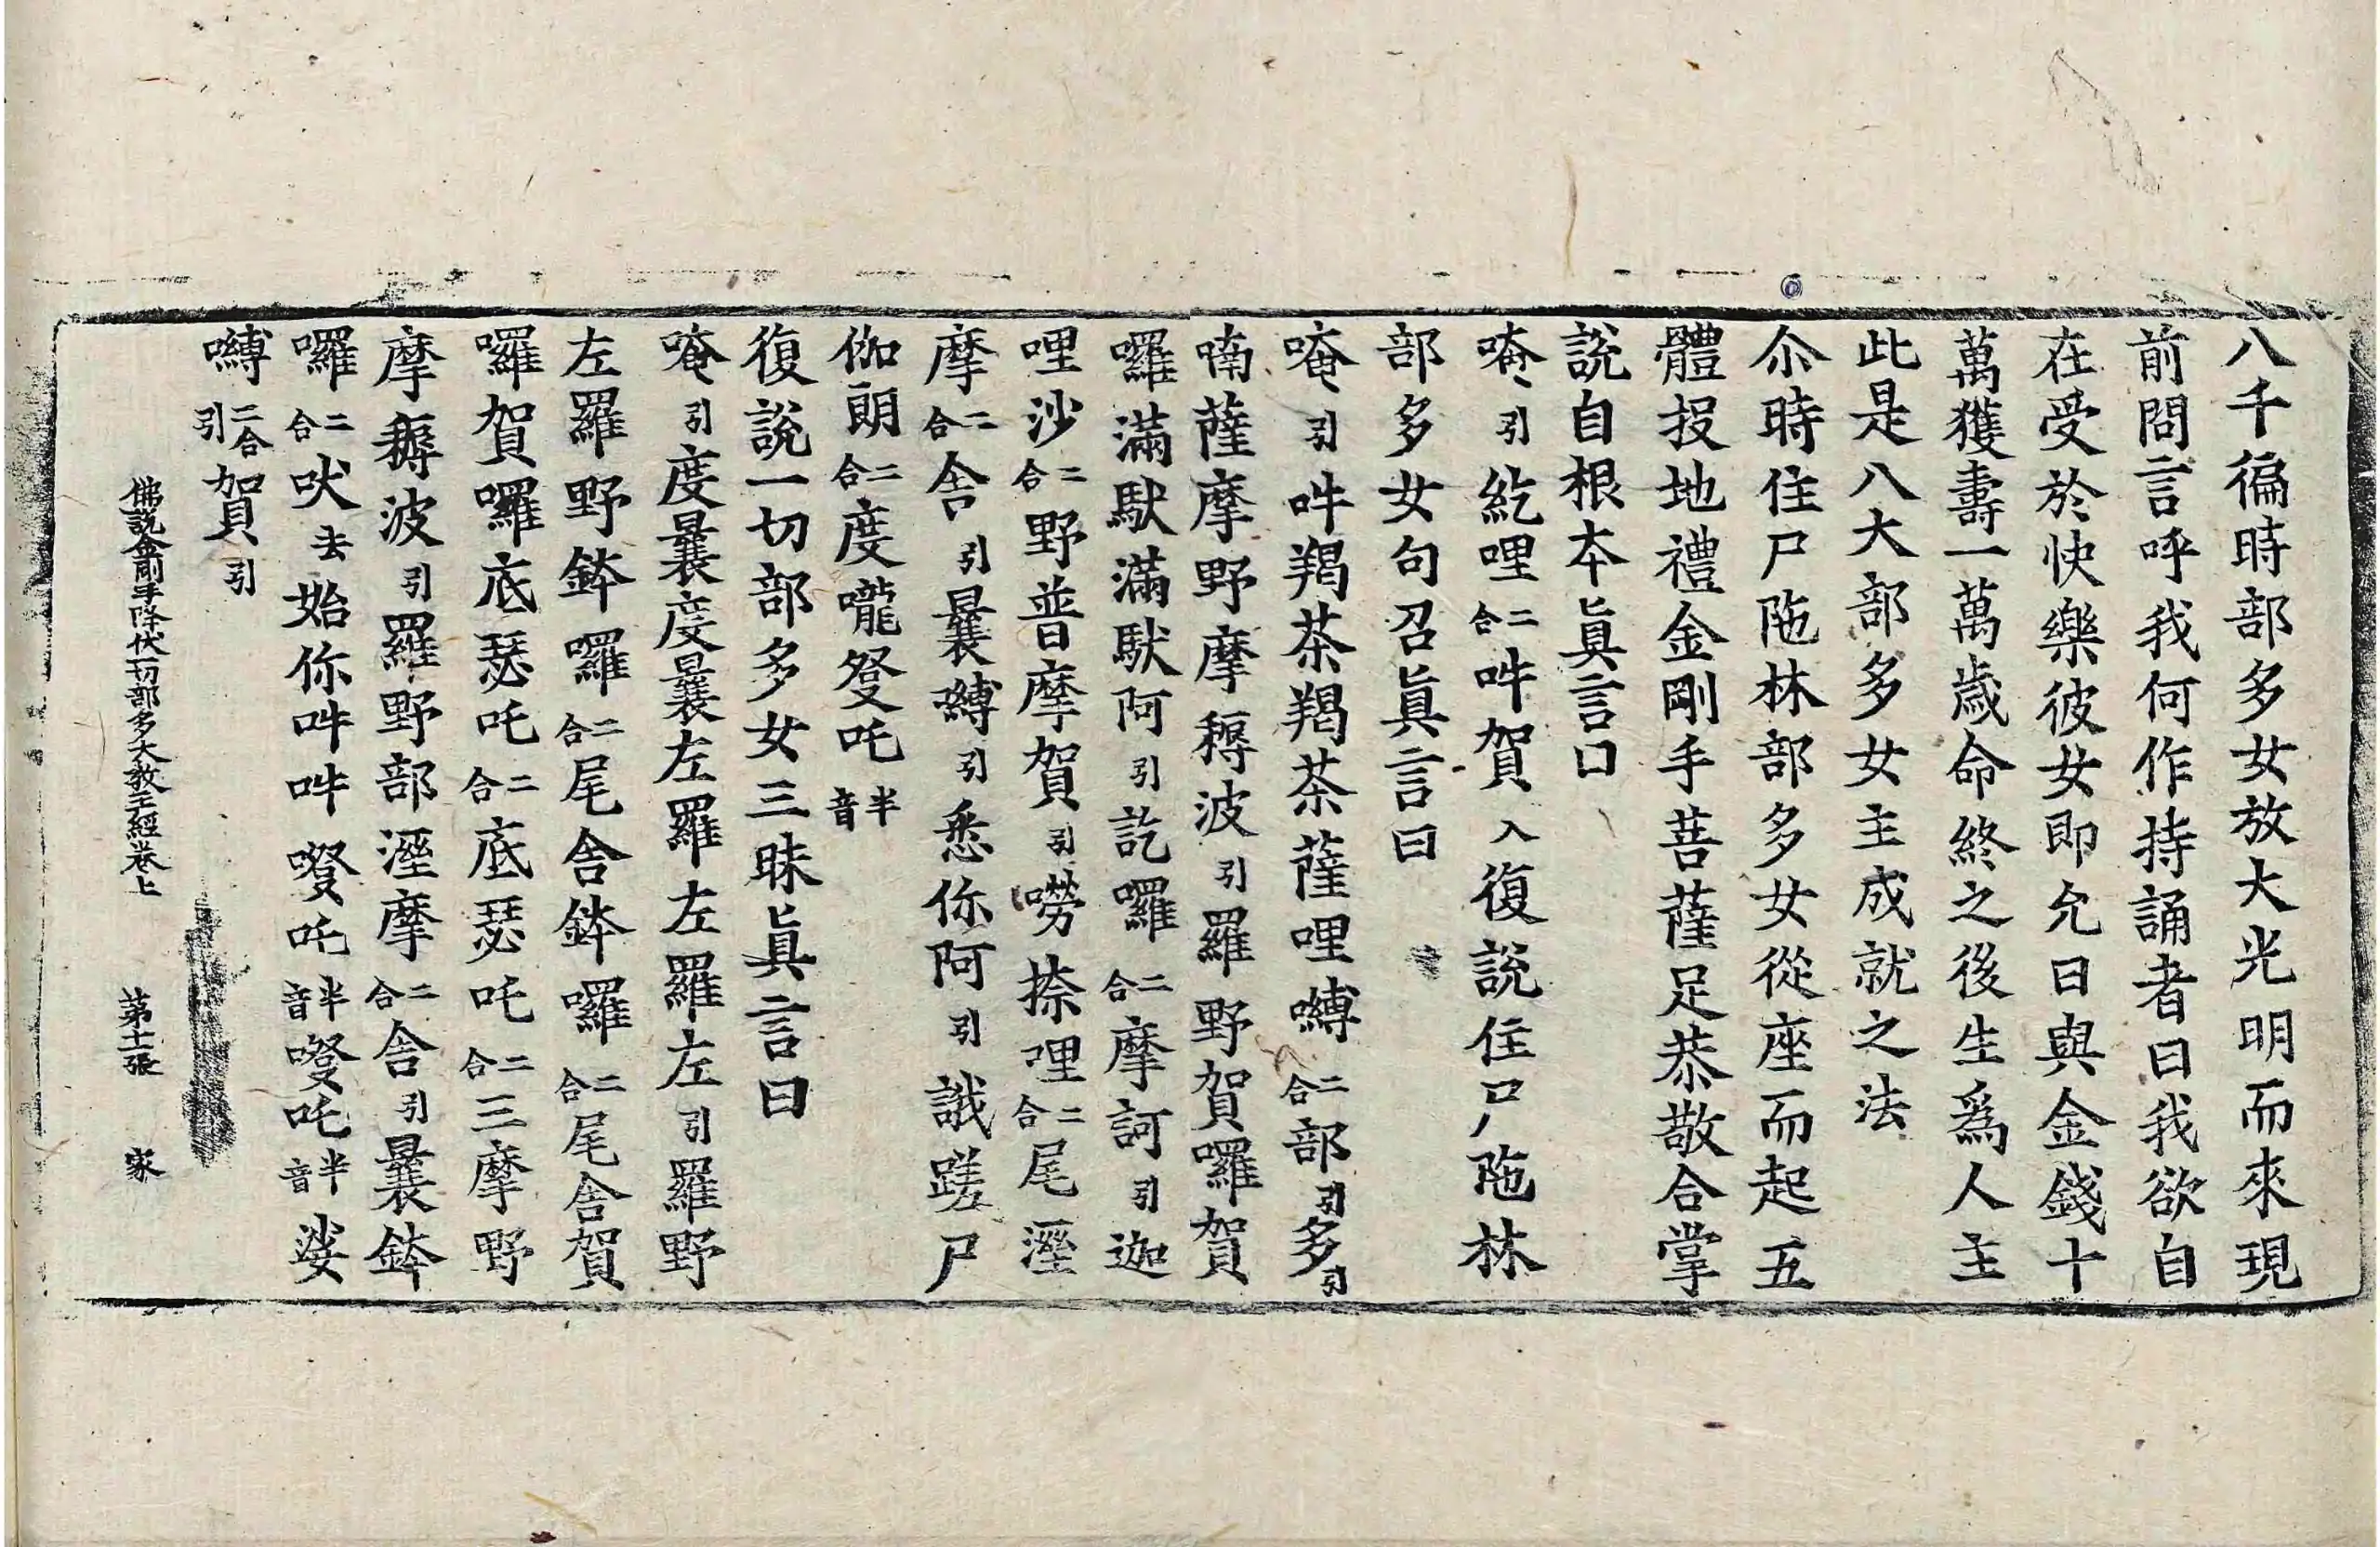 八千徧時部多女放大光明而來現
前問言呼我何作持誦者曰我欲自
在受於快樂彼女即允日與金錢十
萬獲壽一萬歲命終之後生爲人主
此是八大部多女主成就之法
尒時住尸陁林部多女從座而起五
體投地禮金剛手菩薩足恭敬合掌
說自根本眞言曰
唵引紇哩二合吽賀入復說住尸陁林
部多女句召眞言曰
唵引吽羯茶羯茶薩哩嚩二合部引多引
喃薩摩野摩耨波引羅野賀囉賀
囉滿馱滿馱阿引訖囉二合摩訶引迦
哩沙二合野普摩賀引嘮捺哩二合尾溼
摩二合舎引曩嚩引悉你阿引誐蹉尸
伽朗二合度嚨癹吒半音
復說一切部多女三昧眞言曰
唵引度曩度曩左羅左羅左引羅野
左羅野鉢囉二合尾舎鉢囉二合尾舎賀
囉賀囉底瑟吒二合底瑟吒二合三摩野
摩耨波引羅野部溼摩二合舎引曩鉢
囉二合吠去始你吽吽㗶吒半音㗶吒半音娑
嚩二合引賀引
佛說金剛手降伏一切部多大教王經卷上 第十二張 家